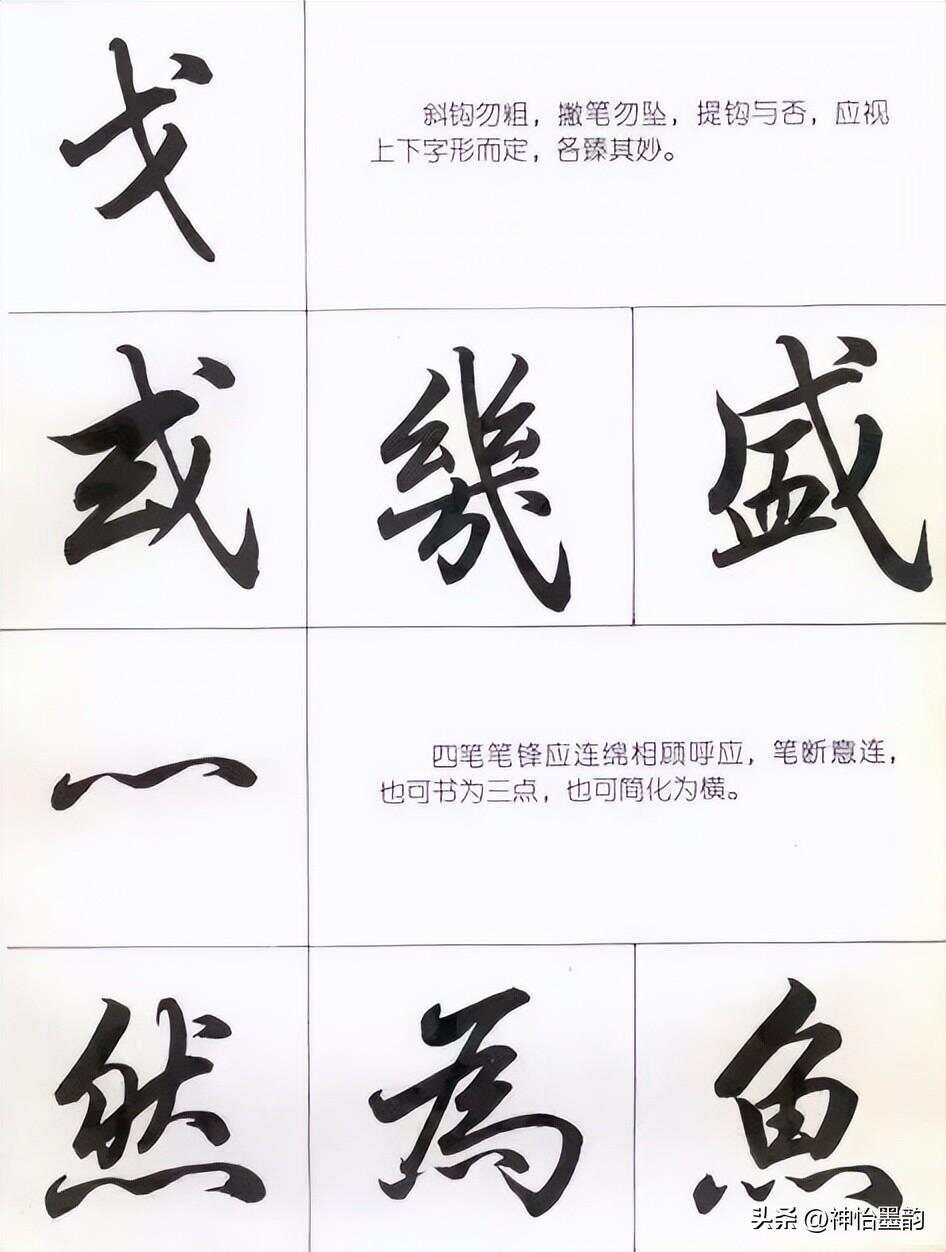 戈
斜钩勿粗，撇笔勿坠，提钩与否，应视
上下字形而定，各臻其妙。
或 幾 盛
灬
四笔笔锋应连绵相顾呼应，笔断意连，
也可书为三点，也可简化为横。
然 為 魚
头条 @神怡墨韵